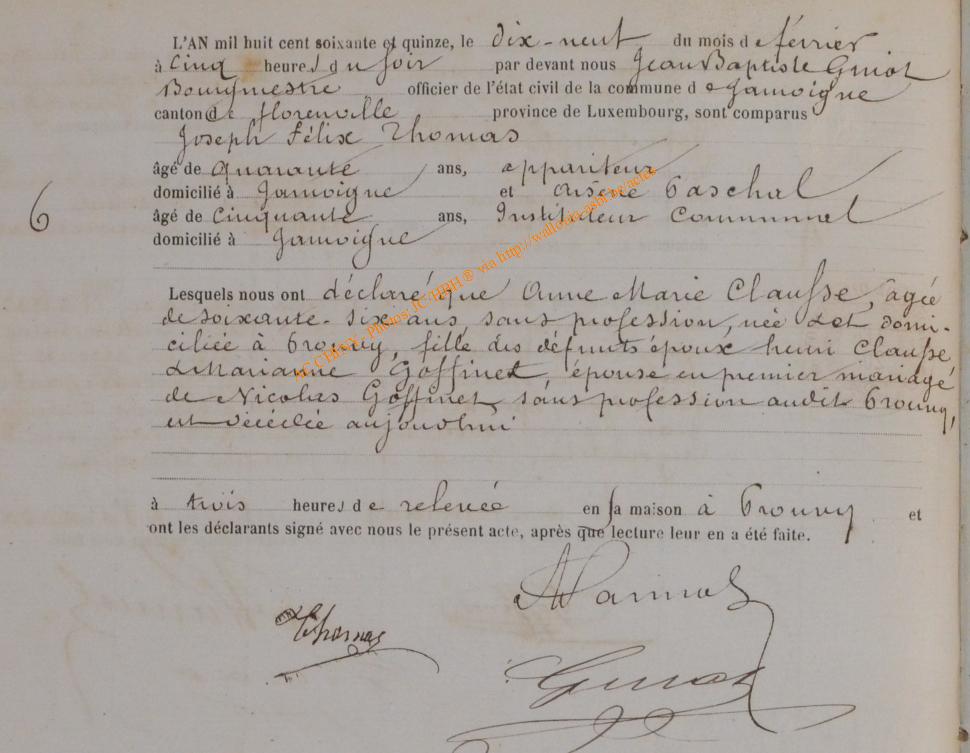 L'AN mil huit cent soixante et quinze, le dix-neuf du mois de février
à Cinq heures du soir par devant nous Jean Baptiste Guiot
Bourgmestre officier de l'état civil de la commune de Jamoigne
canton de florenville province de Luxembourg, sont comparus
Joseph Félix Thomas
âgé de quarante ans, appariteur
domicilié à Jamoigne et Arsène Paschal
6
âgé de Cinquante ans, Instituteur Communal
domicilié à Jamoigne
Lesquels nous ont déclaré que Anne Marie Clausse, agée
de soixante-six ans, sans profession, née & et domi-
ciliée à Prouvy, fille des défunts époux henri Clausse
& Marianne Goffinet, épouse en premier mariage
de Nicolas Goffinet, sans profession audit Prouvy,
est décédée aujourdhui
à trois heures de relevée en sa maison à Prouvy et
ont les déclarants signé avec nous le présent acte, après que lecture leur en a été faite.
Thomas
Guiot
Photos JC HBH ® via http://wallonia-asbl.be/actes